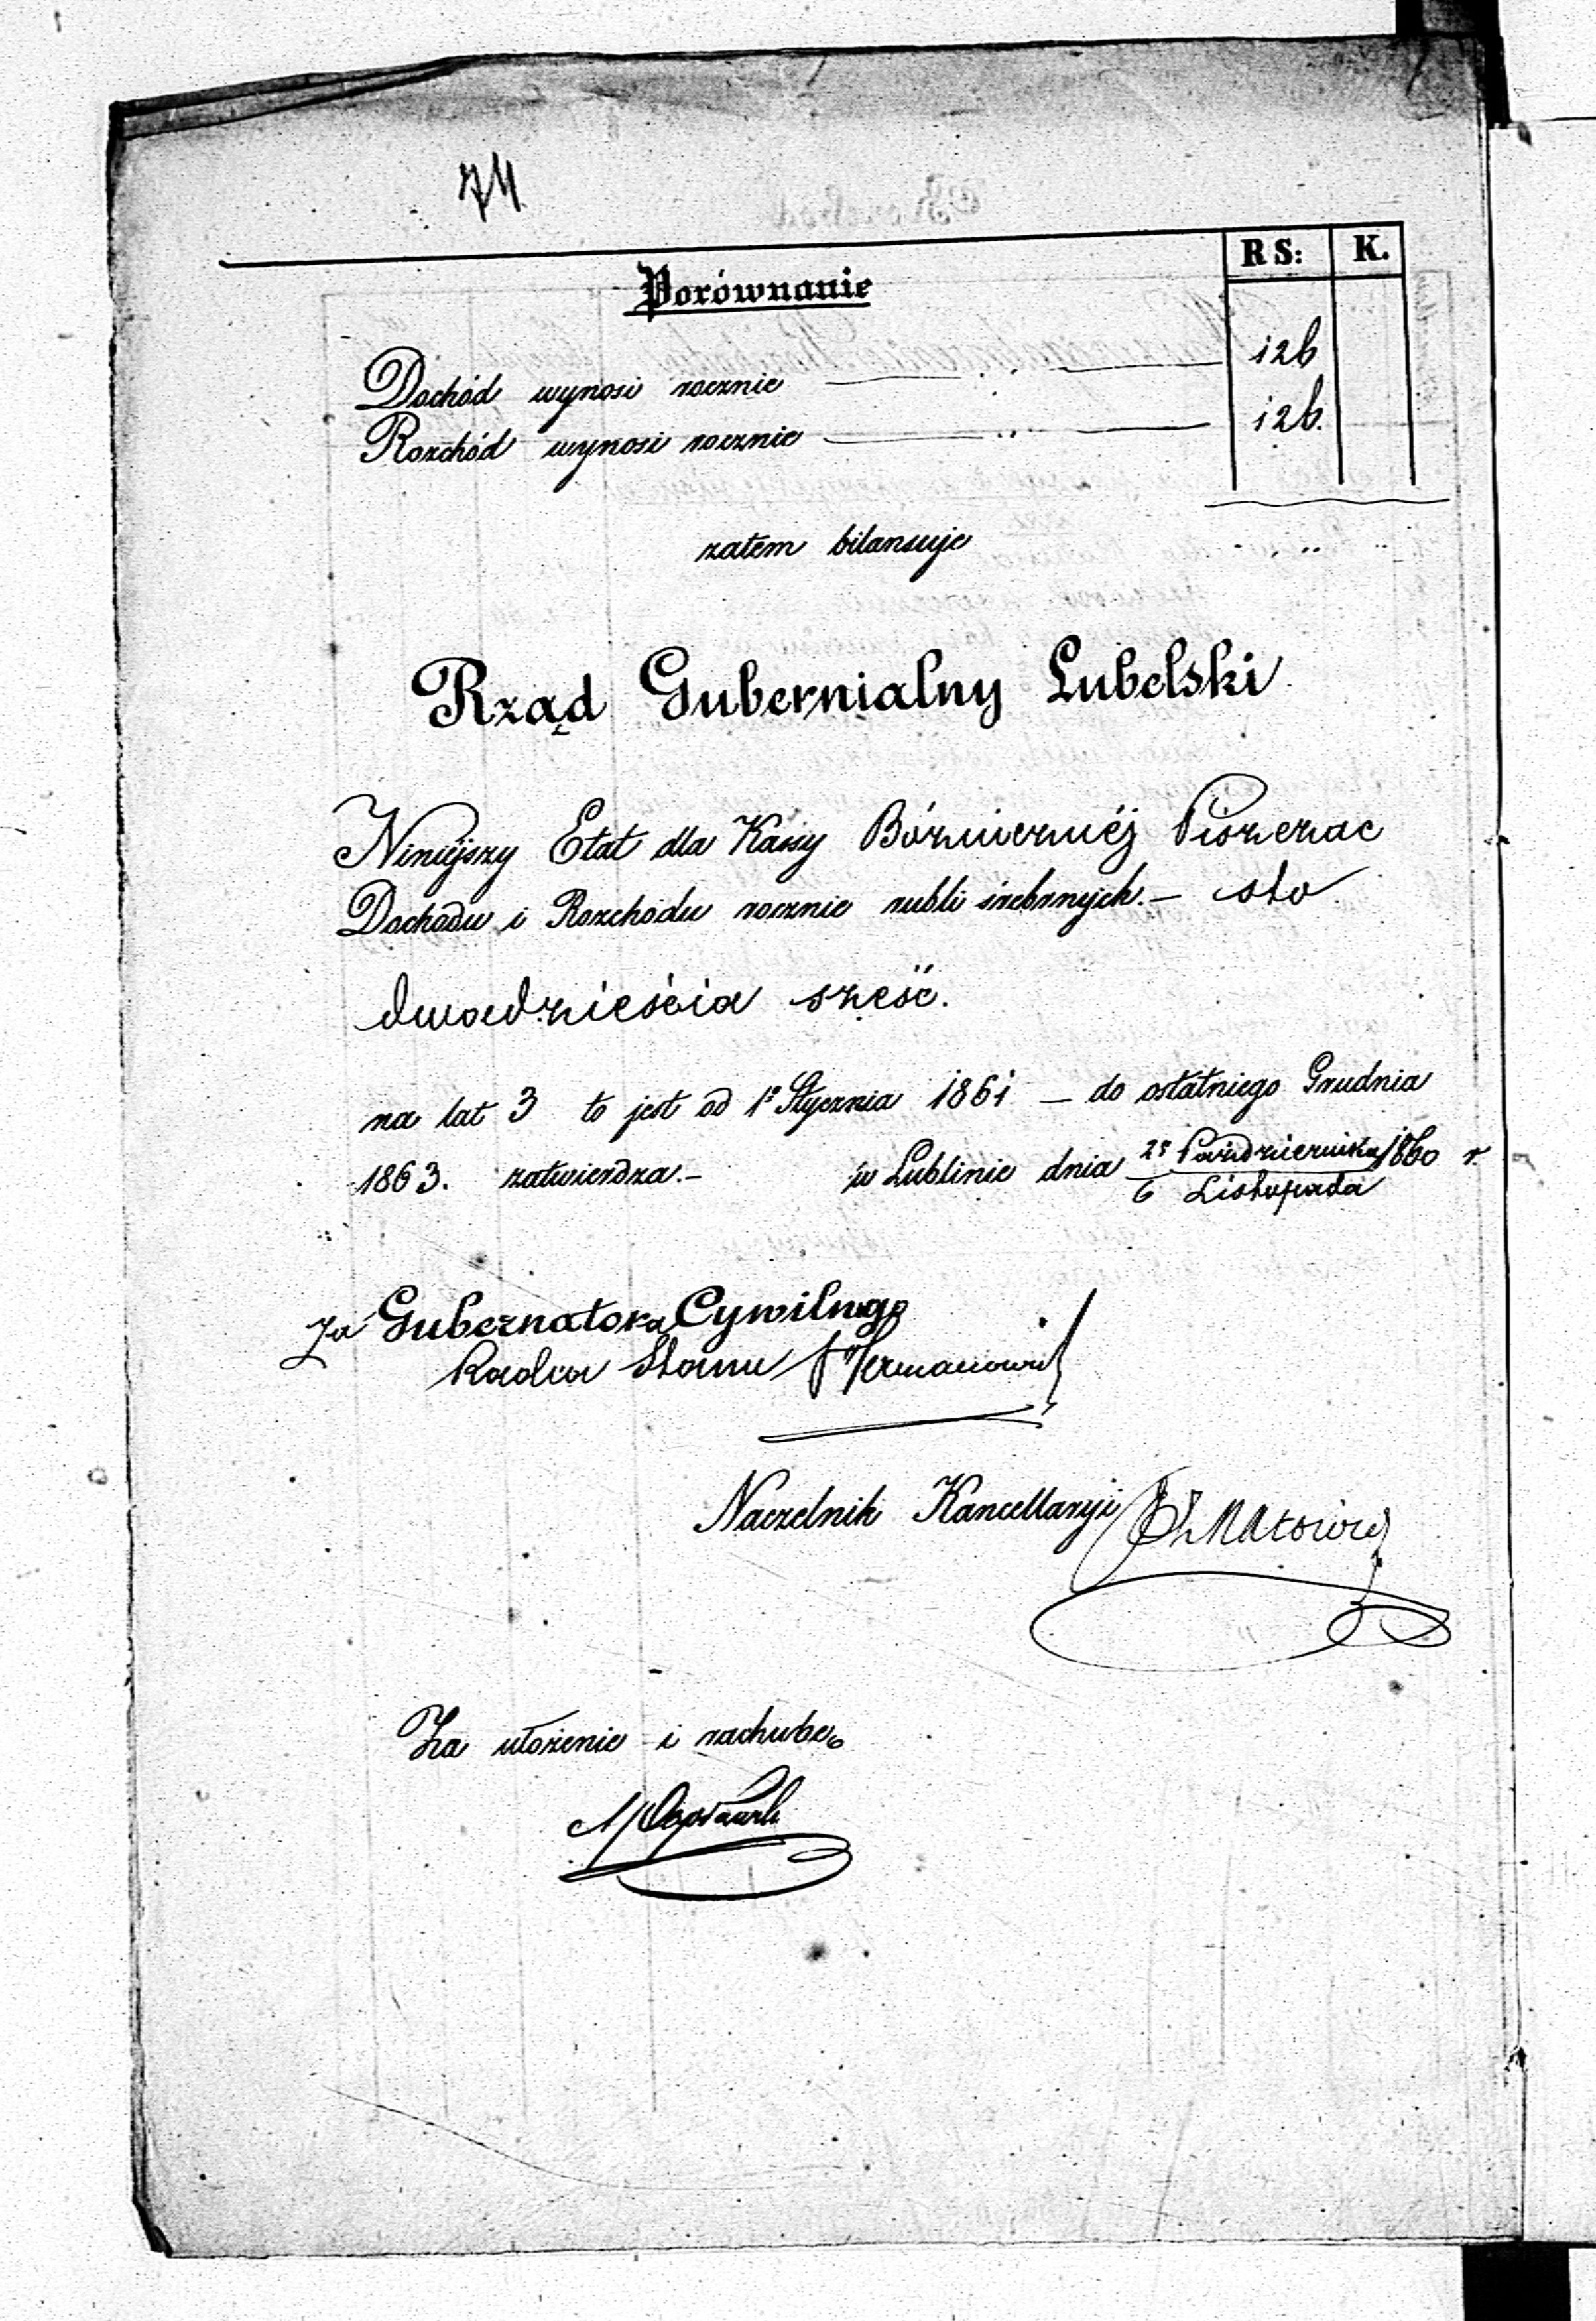 74
RS: K.
Porównanie
Dochód wynosi rocznie 126
Rozchód wynosi rocznie 126.
zatem bilansuje
Rząd Gubernialny Lubelski
Niniéjszy Etat dla Kassy Bóżnicznéj Piszczac
Dochodu i Rozchodu rocznie rubli srebrnych. — sto
dwadzieścia sześć.
na lat 3 to jest od 1º Stycznia 1861 — do ostatniego Grudnia
1863. zatwierdza. — w Lublinie dnia 25 Października / 6 Listopada 1860 r.
Za Gubernatora Cywilnego
Radca Stanu
Naczelnik Kancellaryi
Za ułożenie i rachubę